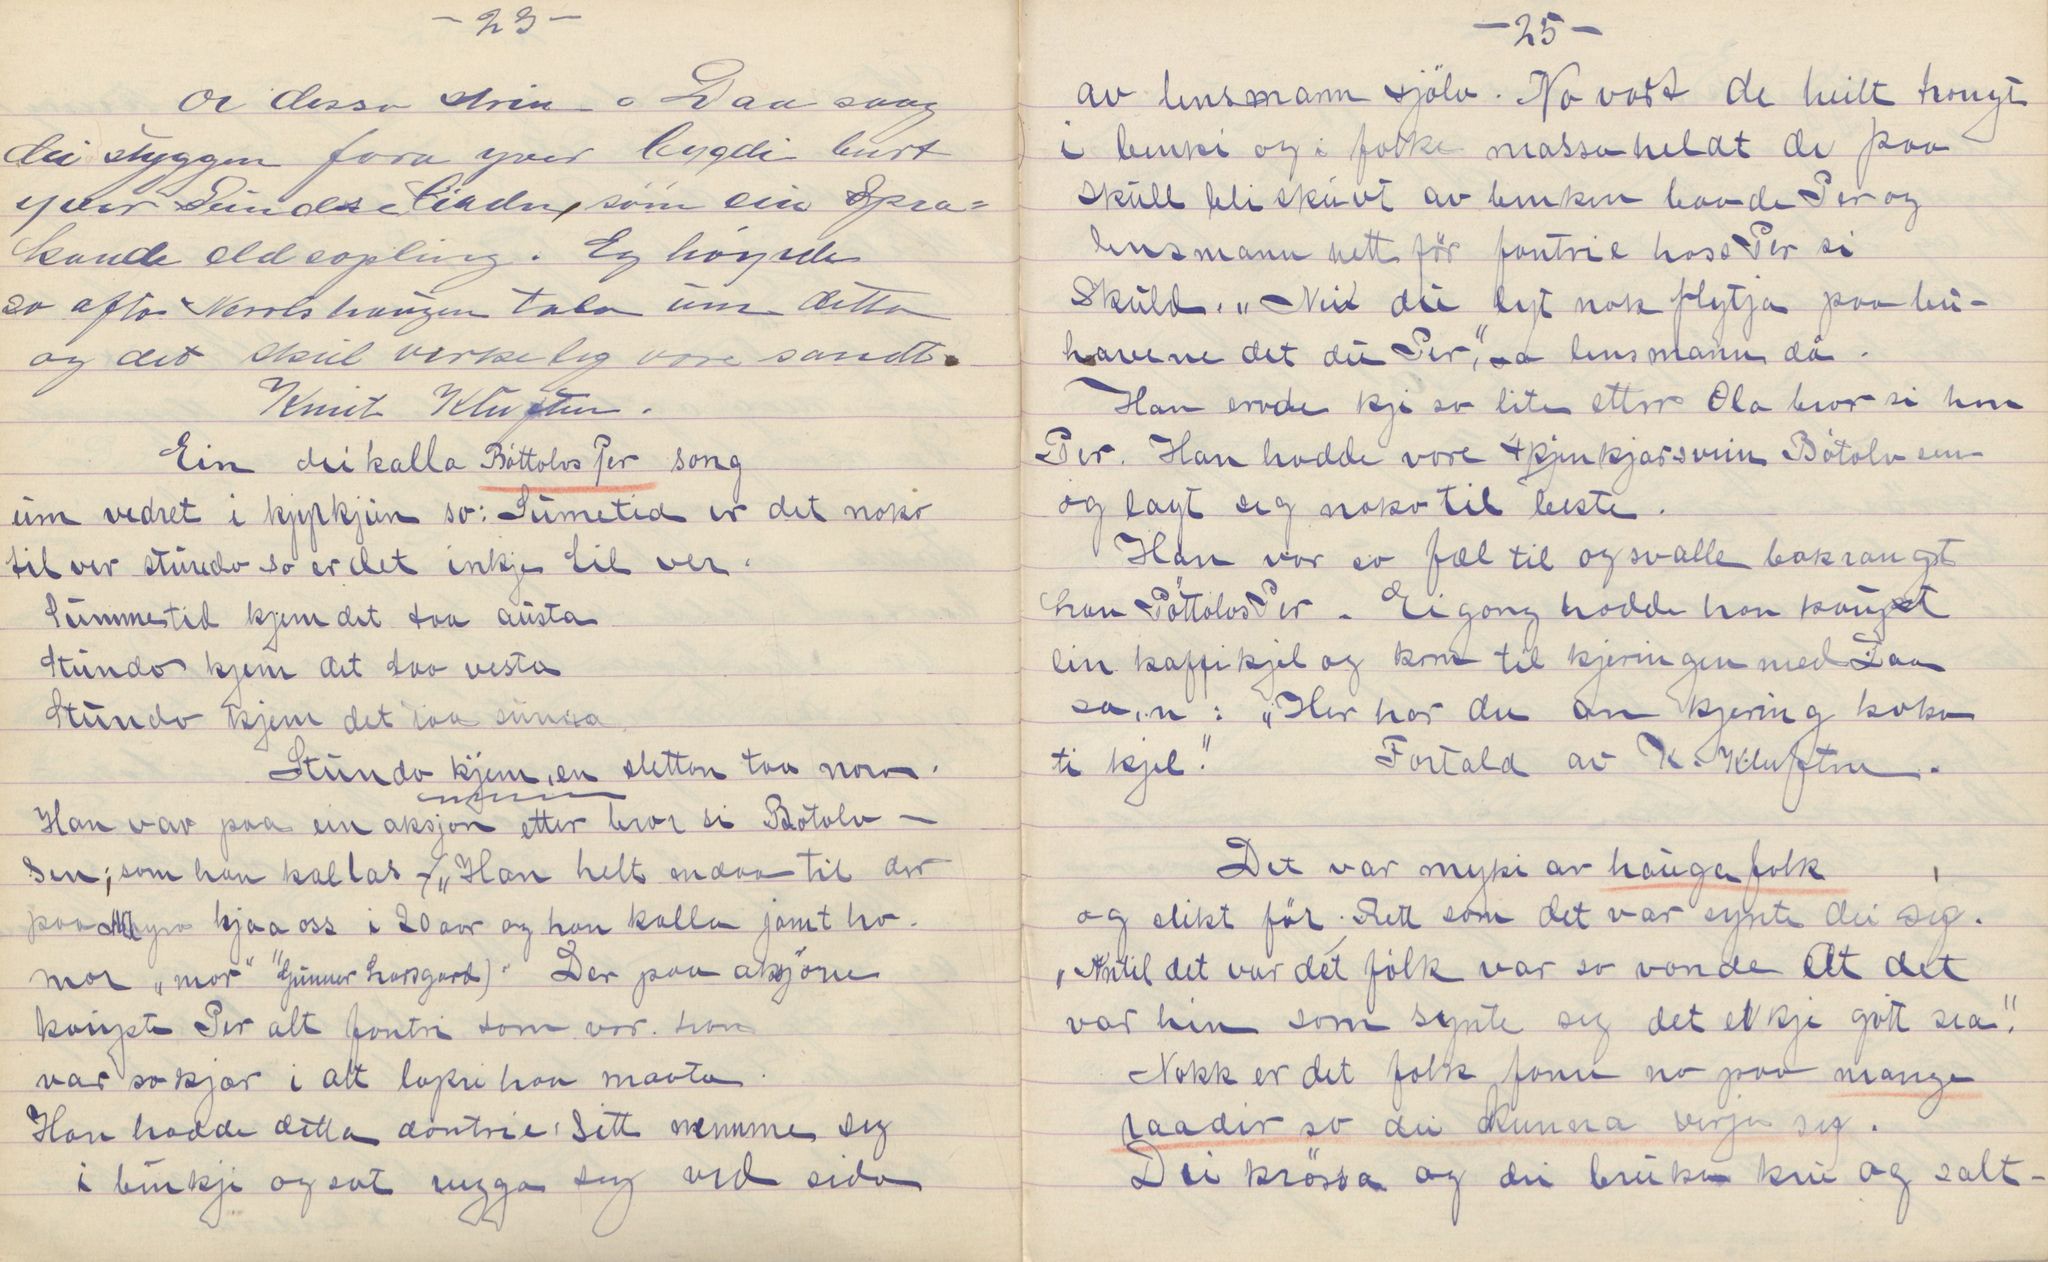 - 23 -
or desso Daa saag
dei styggen fara yver bygdi burt
yver som ein spra=
kande eldsopling. Eg höyrde
so ofto tala um ditta
og det skul verkeleg vore sandt.
Knut Kluften.
Ein dei kalla Bøttolvs Per song
um vedret i so: Sumetid er det noko
til ver stundo so er det inkje til ver.
Summetid kjem det taa austa
Stundo kjem det taa vesta
Stundo kjem det taa sunna
Stundo kjem, en sletten taa nora.
Han var paa ein aksjon etter bror si Bótolv -
sen; som han kallas - „Han helt endaa til der
paa Myro hjaa oss i 20 aar og han kalla jamt ho.
mor „mor" "Gunner Larsgard)" Der paa aksjóne
kaupte Per alt fantri som var. han
var so kjær i alt han maatte.
Han hadde ditta dontrie sett seg
i binkji og sat rugga seg ved sida
- 25 -
av lensmann sjölv. No vart de heilt trongt
i benki og i folke massa heldt de paa
skull bli skuvt av benken baade Per og
lensmann nett för fantrie hass Per si
Skuld. „Nei du lyt nok flytja paa bu-
havene det du Per," sa lensmann då.
Han ervde kji so lite etter Ola bror si han
Per. Han hadde vore Bótolv sen
og lagt seg noko til beste.
Han var so fæl til og svalle bakrangst
han Póttolvs Per. Ei gong hadde han kaupt
ein kaffikjel og kom til kjeringen med Daa
sa, n: „Her har du an kjering koka
ti kjel." Fortald av K. Kluften.
Det var mykji av haugafolk
og slikt för. Rett som det var synte dei seg.
„Antil det var det folk var so vonde At det
var hin som synte seg det er kje gott sea".
Nokk er det folk fann no paa mange
raadir so dei kunna verja seg.
Dei krössa og dei bruka kru og salt-